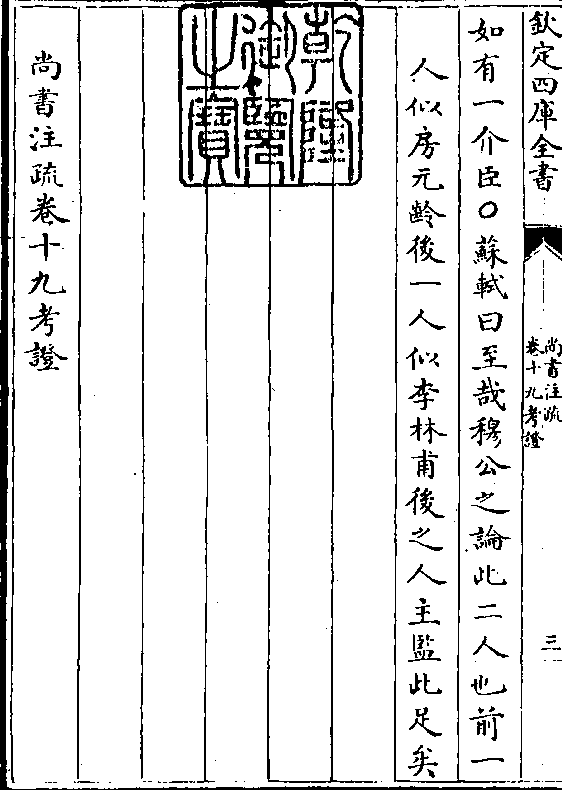 欽定四庫全書
尚書注疏
卷十九考證
三
如有一介臣○蘇軾曰至哉穆公之論此二人也前一
人似房元齡後一人似李林甫後之人主監此足矣
乾隆
御覽
之寶
尚書注疏卷十九考證